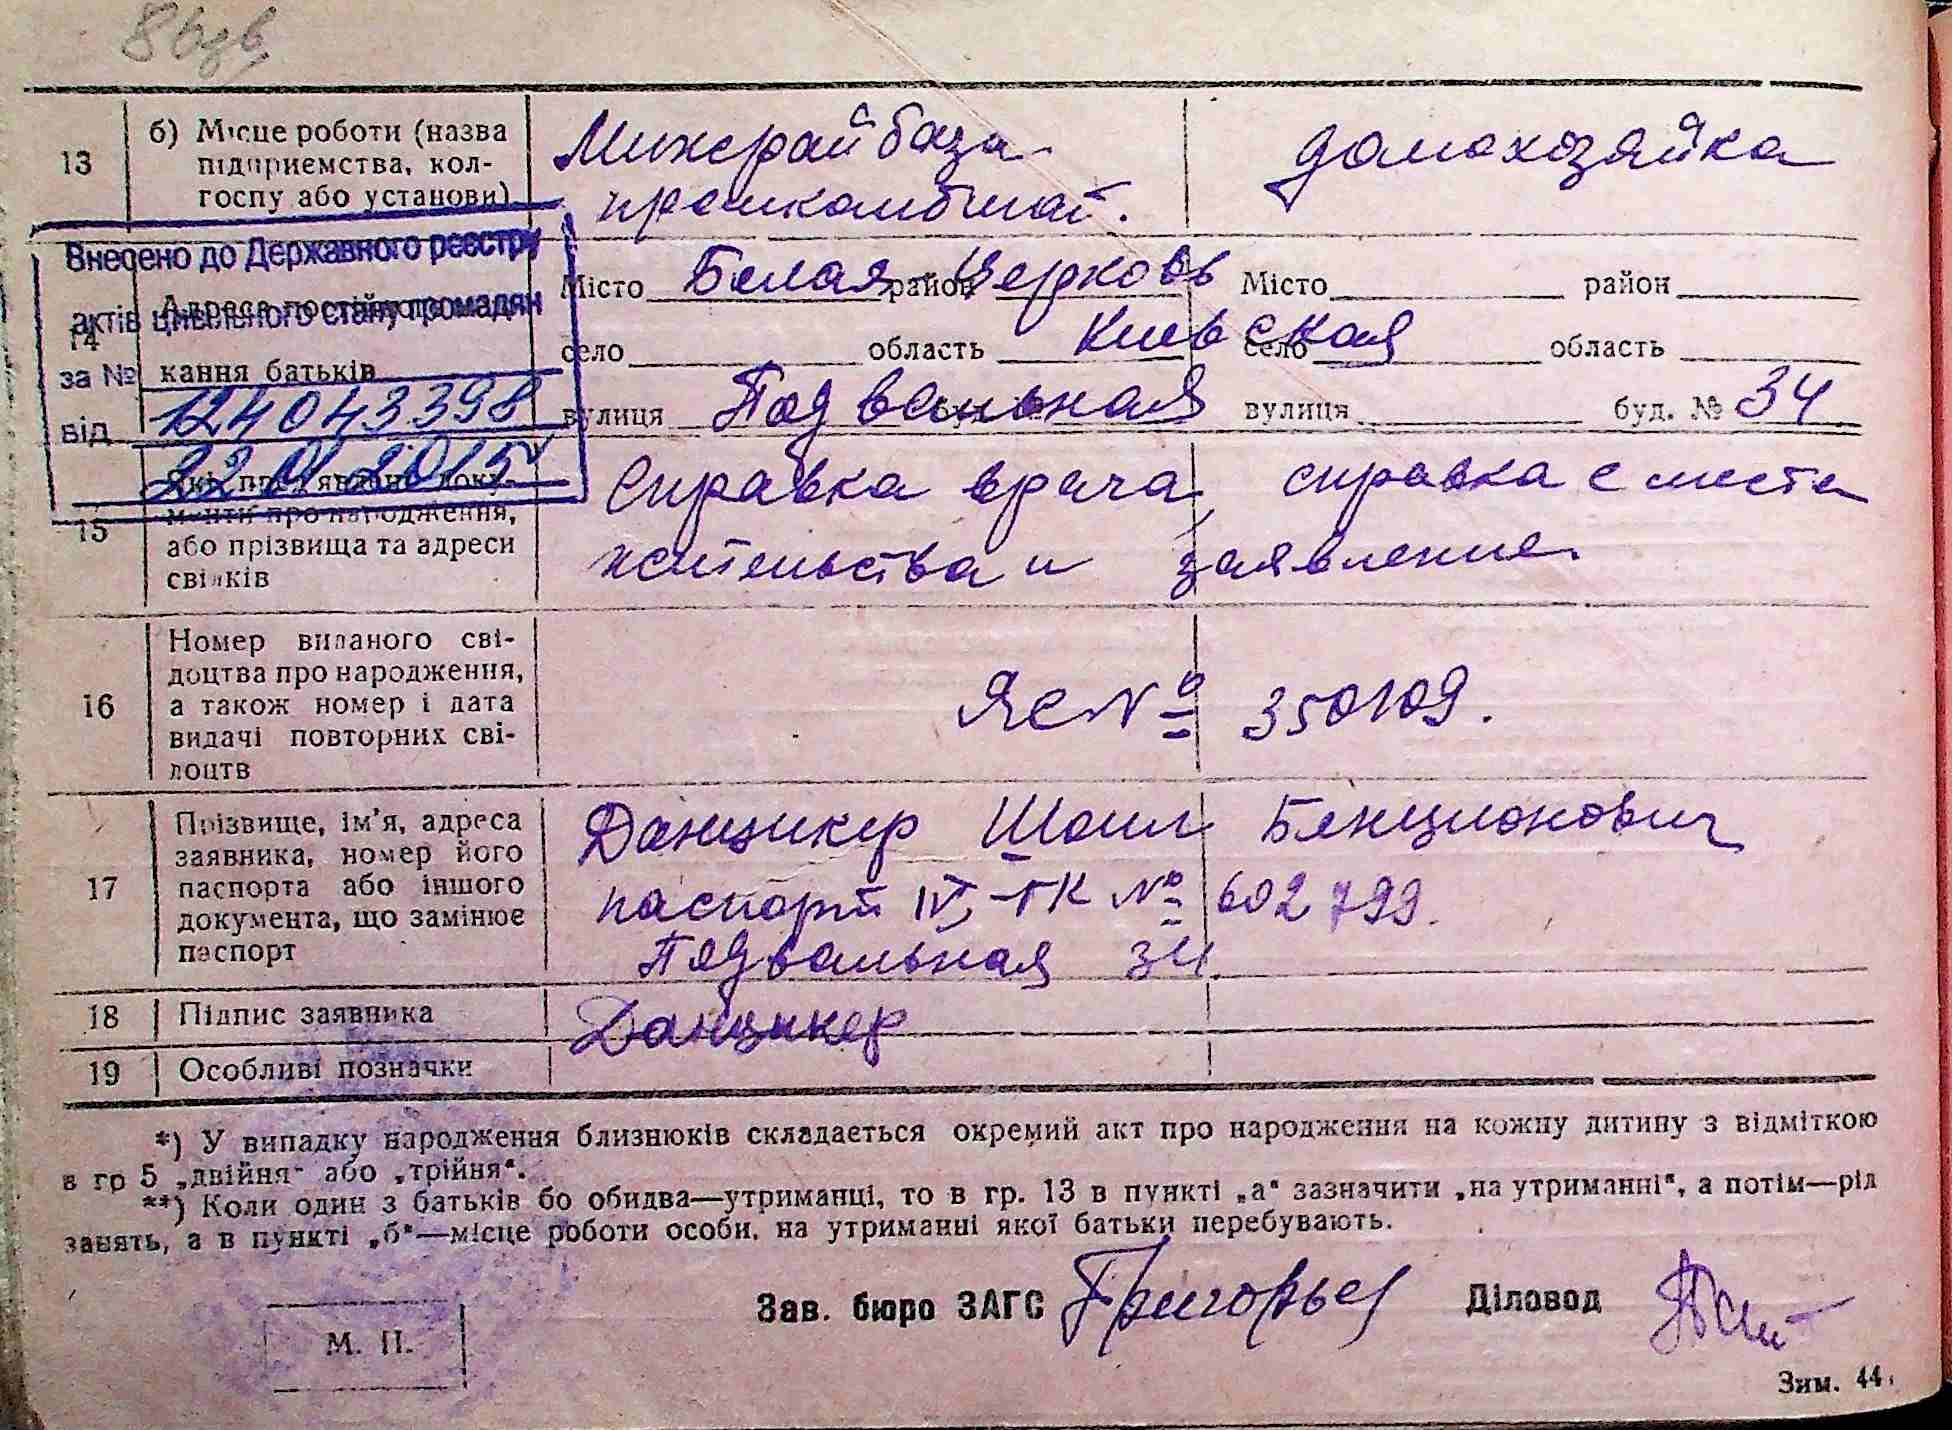 13
б) Місце роботи (назва
підприємства, кол-
госпу або установи)
Межрайбаза
промкомбинат.
домохозяйка
Внесено до Державного реєстру
актів цивільного стану громадян
за №
124043398
від
22 01 2015
14
Адреса постійного
кання батьків
Місто Белая район Церковь Місто район
село область Киевская село область
вулиця Подвальная вулиця буд. № 34
15
Які пред'явлені доку-
менти про народження,
або прізвища та адреси
свідків
Справка врача, справка с места
жительства и заявление.
16
Номер виданого сві-
доцтва про народження,
а також номер і дата
видачі повторних сві-
доцтв
ЯС № 350109.
17
Прізвище, ім'я, адреса
заявника, номер його
паспорта або іншого
документа, що замінює
паспорт
Данцикер Шоил Бенционович
паспорт IV-ГК № 602799.
Подвальная 34
18
Підпис заявника
Данцикер
19
Особливі позначки
*) У випадку народження близнюків складається окремий акт про народження на кожну дитину з відміткою
в гр 5 „двійня" або „трійня".
**) Коли один з батьків бо обидва—утриманці, то в гр. 13 в пункті „а" зазначити „на утриманні", а потім—рід
занять, а в пункті „б"—місце роботи особи, на утриманні якої батьки перебувають.
Зав. бюро ЗАГС Григорьев Діловод
М. П.
Зим. 44